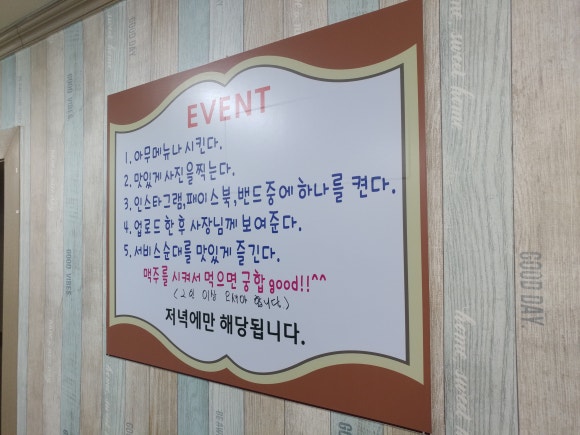 EVENT
1. 아무메뉴나 시킨다.
2. 맛있게 사진을찍는다.
3. 인스타그램,페이스북,밴드중에 하나를 켠다.
4. 업로드 한 후 사장님께 보여준다.
5. 서비스순대를 맛있게 즐긴다.
맥주를 시켜서 먹으면 궁합 good!!^^
(2인 이상 오셔야 합니다)
저녁에만 해당됩니다.
GOOD DAY.
home sweet home
GOOD VIBES